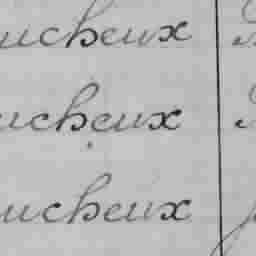 ucheux
ucheux
ucheux